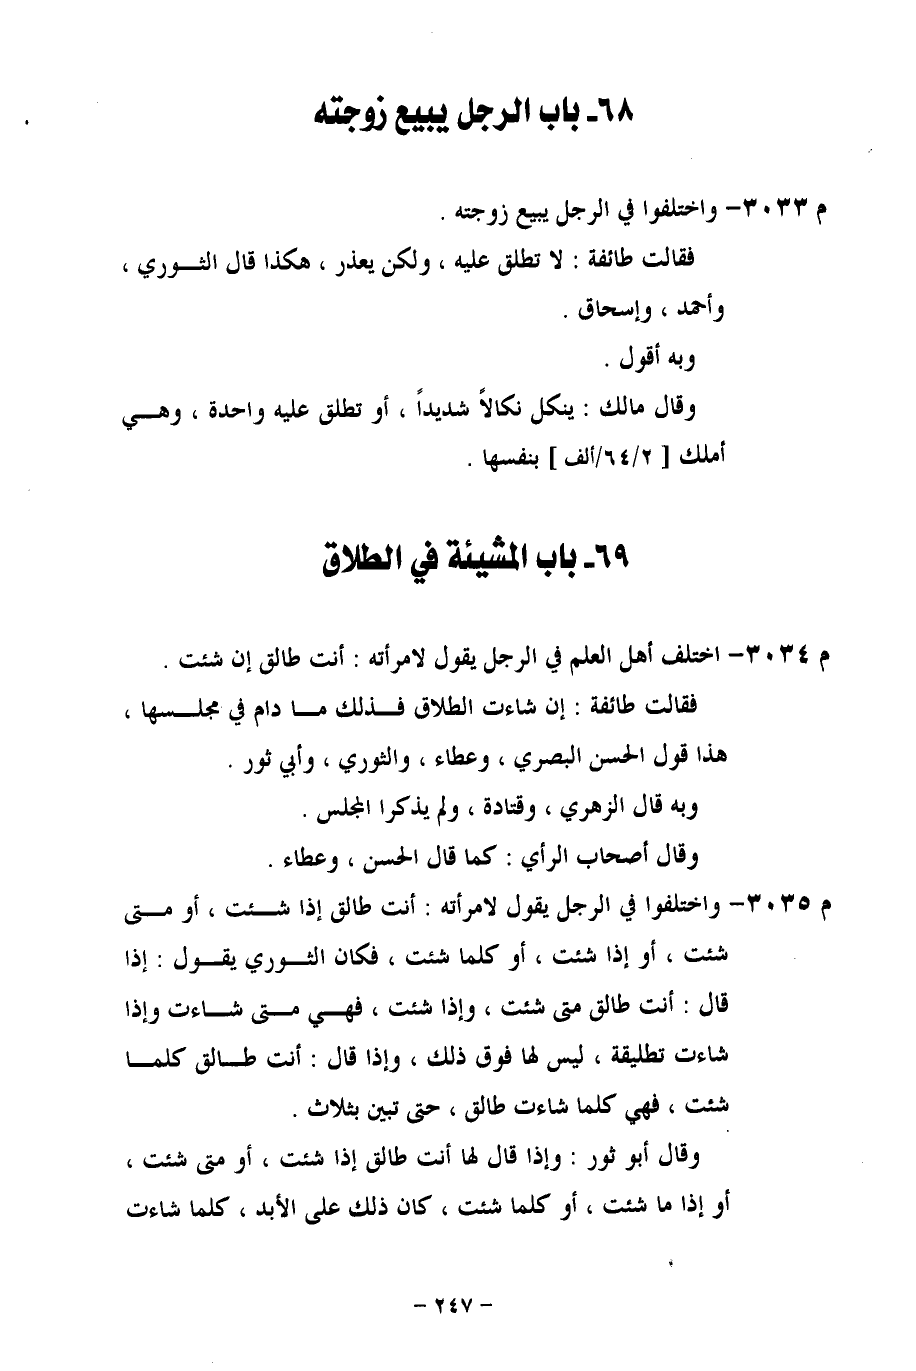 ٦٨ـ باب الرجل يبيع زوجته
م ٣٠٣٣– واختلفوا في الرجل يبيع زوجته .
فقالت طائفة : لا تطلق عليه ، ولكن يعذر ، هكذا قال الثــوري ،
وأحمد ، وإسحاق .
وبه أقول .
وقال مالك : ينكل نكالاً شديداً ، أو تطلق عليه واحدة ، وهــي
أملك [ ٦٤/٢/ألف ] بنفسها .
٦٩ـ باب المشيئة في الطلاق
م ٣٠٣٤– اختلف أهل العلم في الرجل يقول لامرأته : أنت طالق إن شئت .
فقالت طائفة : إن شاءت الطلاق فــذلك مــا دام في مجلــسها ،
هذا قول الحسن البصري ، وعطاء ، والثوري ، وأبي ثور .
وبه قال الزهري ، وقتادة ، ولم يذكرا المجلس .
وقال أصحاب الرأي : كما قال الحسن ، وعطاء .
م ٣٠٣٥– واختلفوا في الرجل يقول لامرأته : أنت طالق إذا شــئت ، أو مــتى
شئت ، أو إذا شئت ، أو كلما شئت ، فكان الثــوري يقــول : إذا
قال : أنت طالق متى شئت ، وإذا شئت ، فهــي مــتى شــاءت وإذا
شاءت تطليقة ، ليس لها فوق ذلك ، وإذا قال : أنت طــالق كلمــا
شئت ، فهي كلما شاءت طالق ، حتى تبين بثلاث .
وقال أبو ثور : وإذا قال لها أنت طالق إذا شئت ، أو متى شئت ،
أو إذا ما شئت ، أو كلما شئت ، كان ذلك على الأبد ، كلما شاءت
– ٢٤٧ –